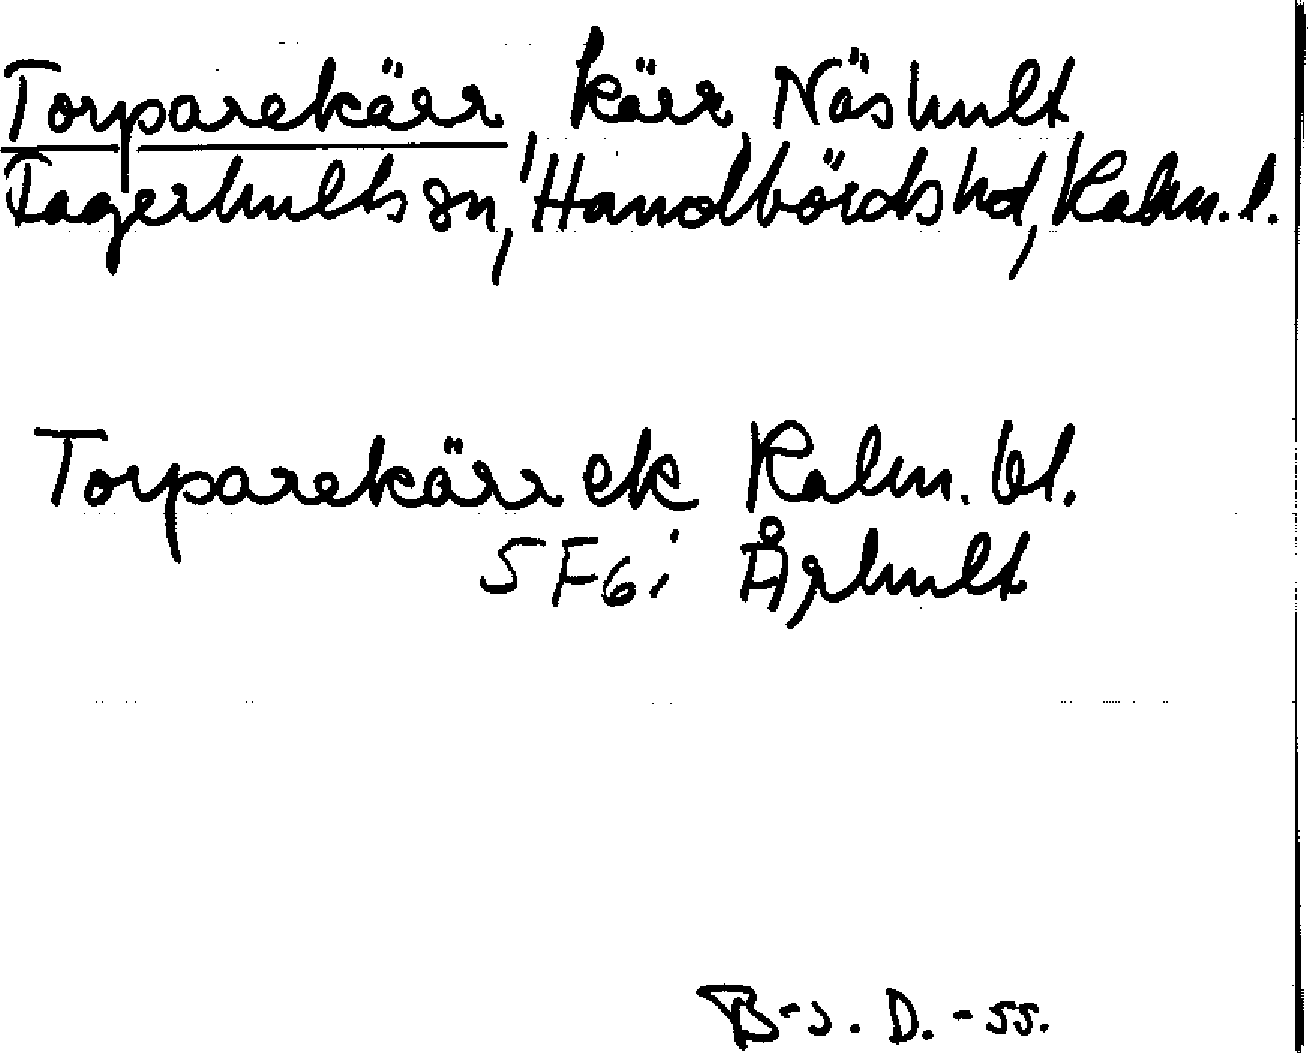 Torparekärr, kärr, Näshult
Fagerhults sn, Handbörds hd, Kalm. l.
Torparekärr ek Kalm. bl.
5F6i Århult
B-s. D. -55.